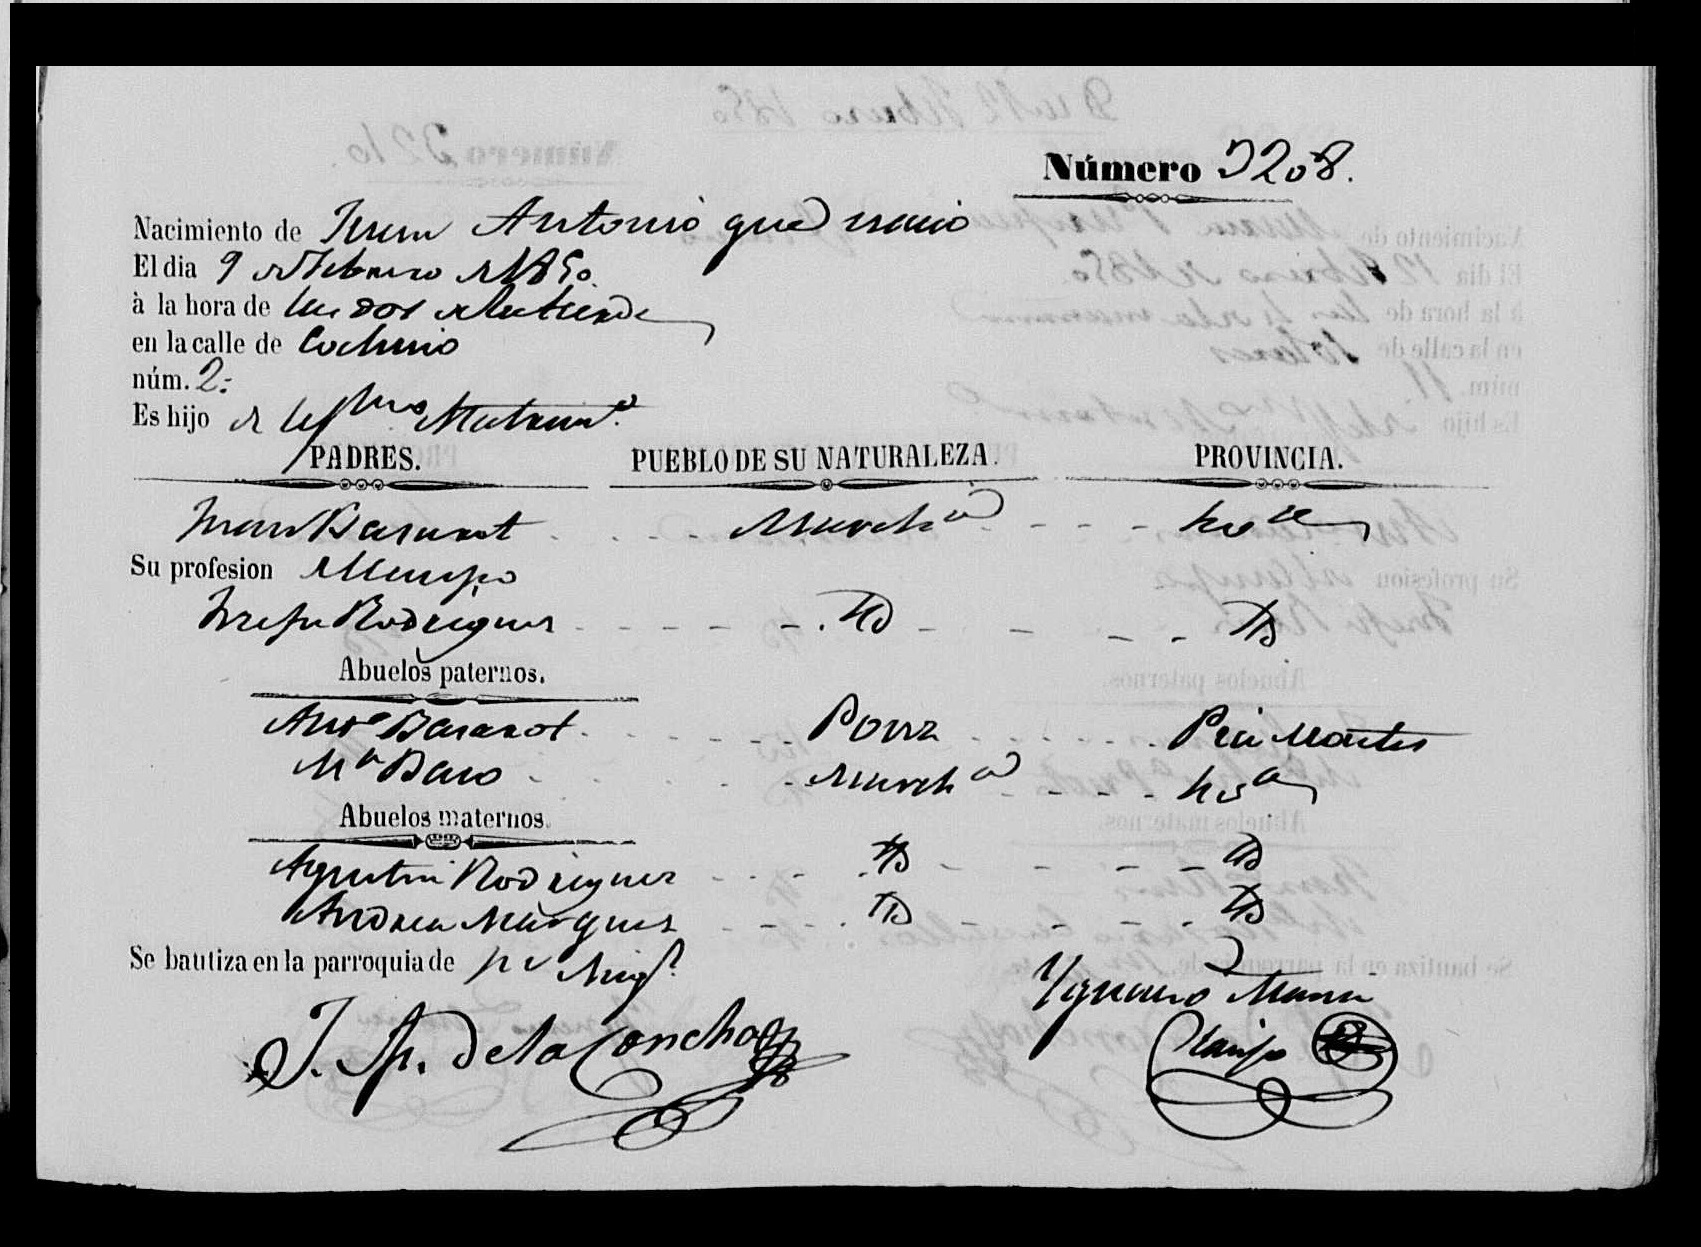 Número 3208.
Nacimiento de Juan Antonio que nacio
El dia 9 de Febrero de 1850.
à la hora de las dos de la tarde
en la calle de Cochino
núm. 2.
Es hijo de legmo Matrimo.
PADRES. PUEBLO DE SU NATURALEZA. PROVINCIA.
Juan Basarot Murcha
Su profesion
Josefa Rodriguez YD YD
Abuelos paternos.
Anto Basarot Pia Montes
Ma Baro Murcha
Abuelos maternos.
Agustin Rodriguez YD YD
Andrea Marquez YD YD
Se bautiza en la parroquia de Sn Migl.
J. Sp. de la Concha
Ygnacio Maria